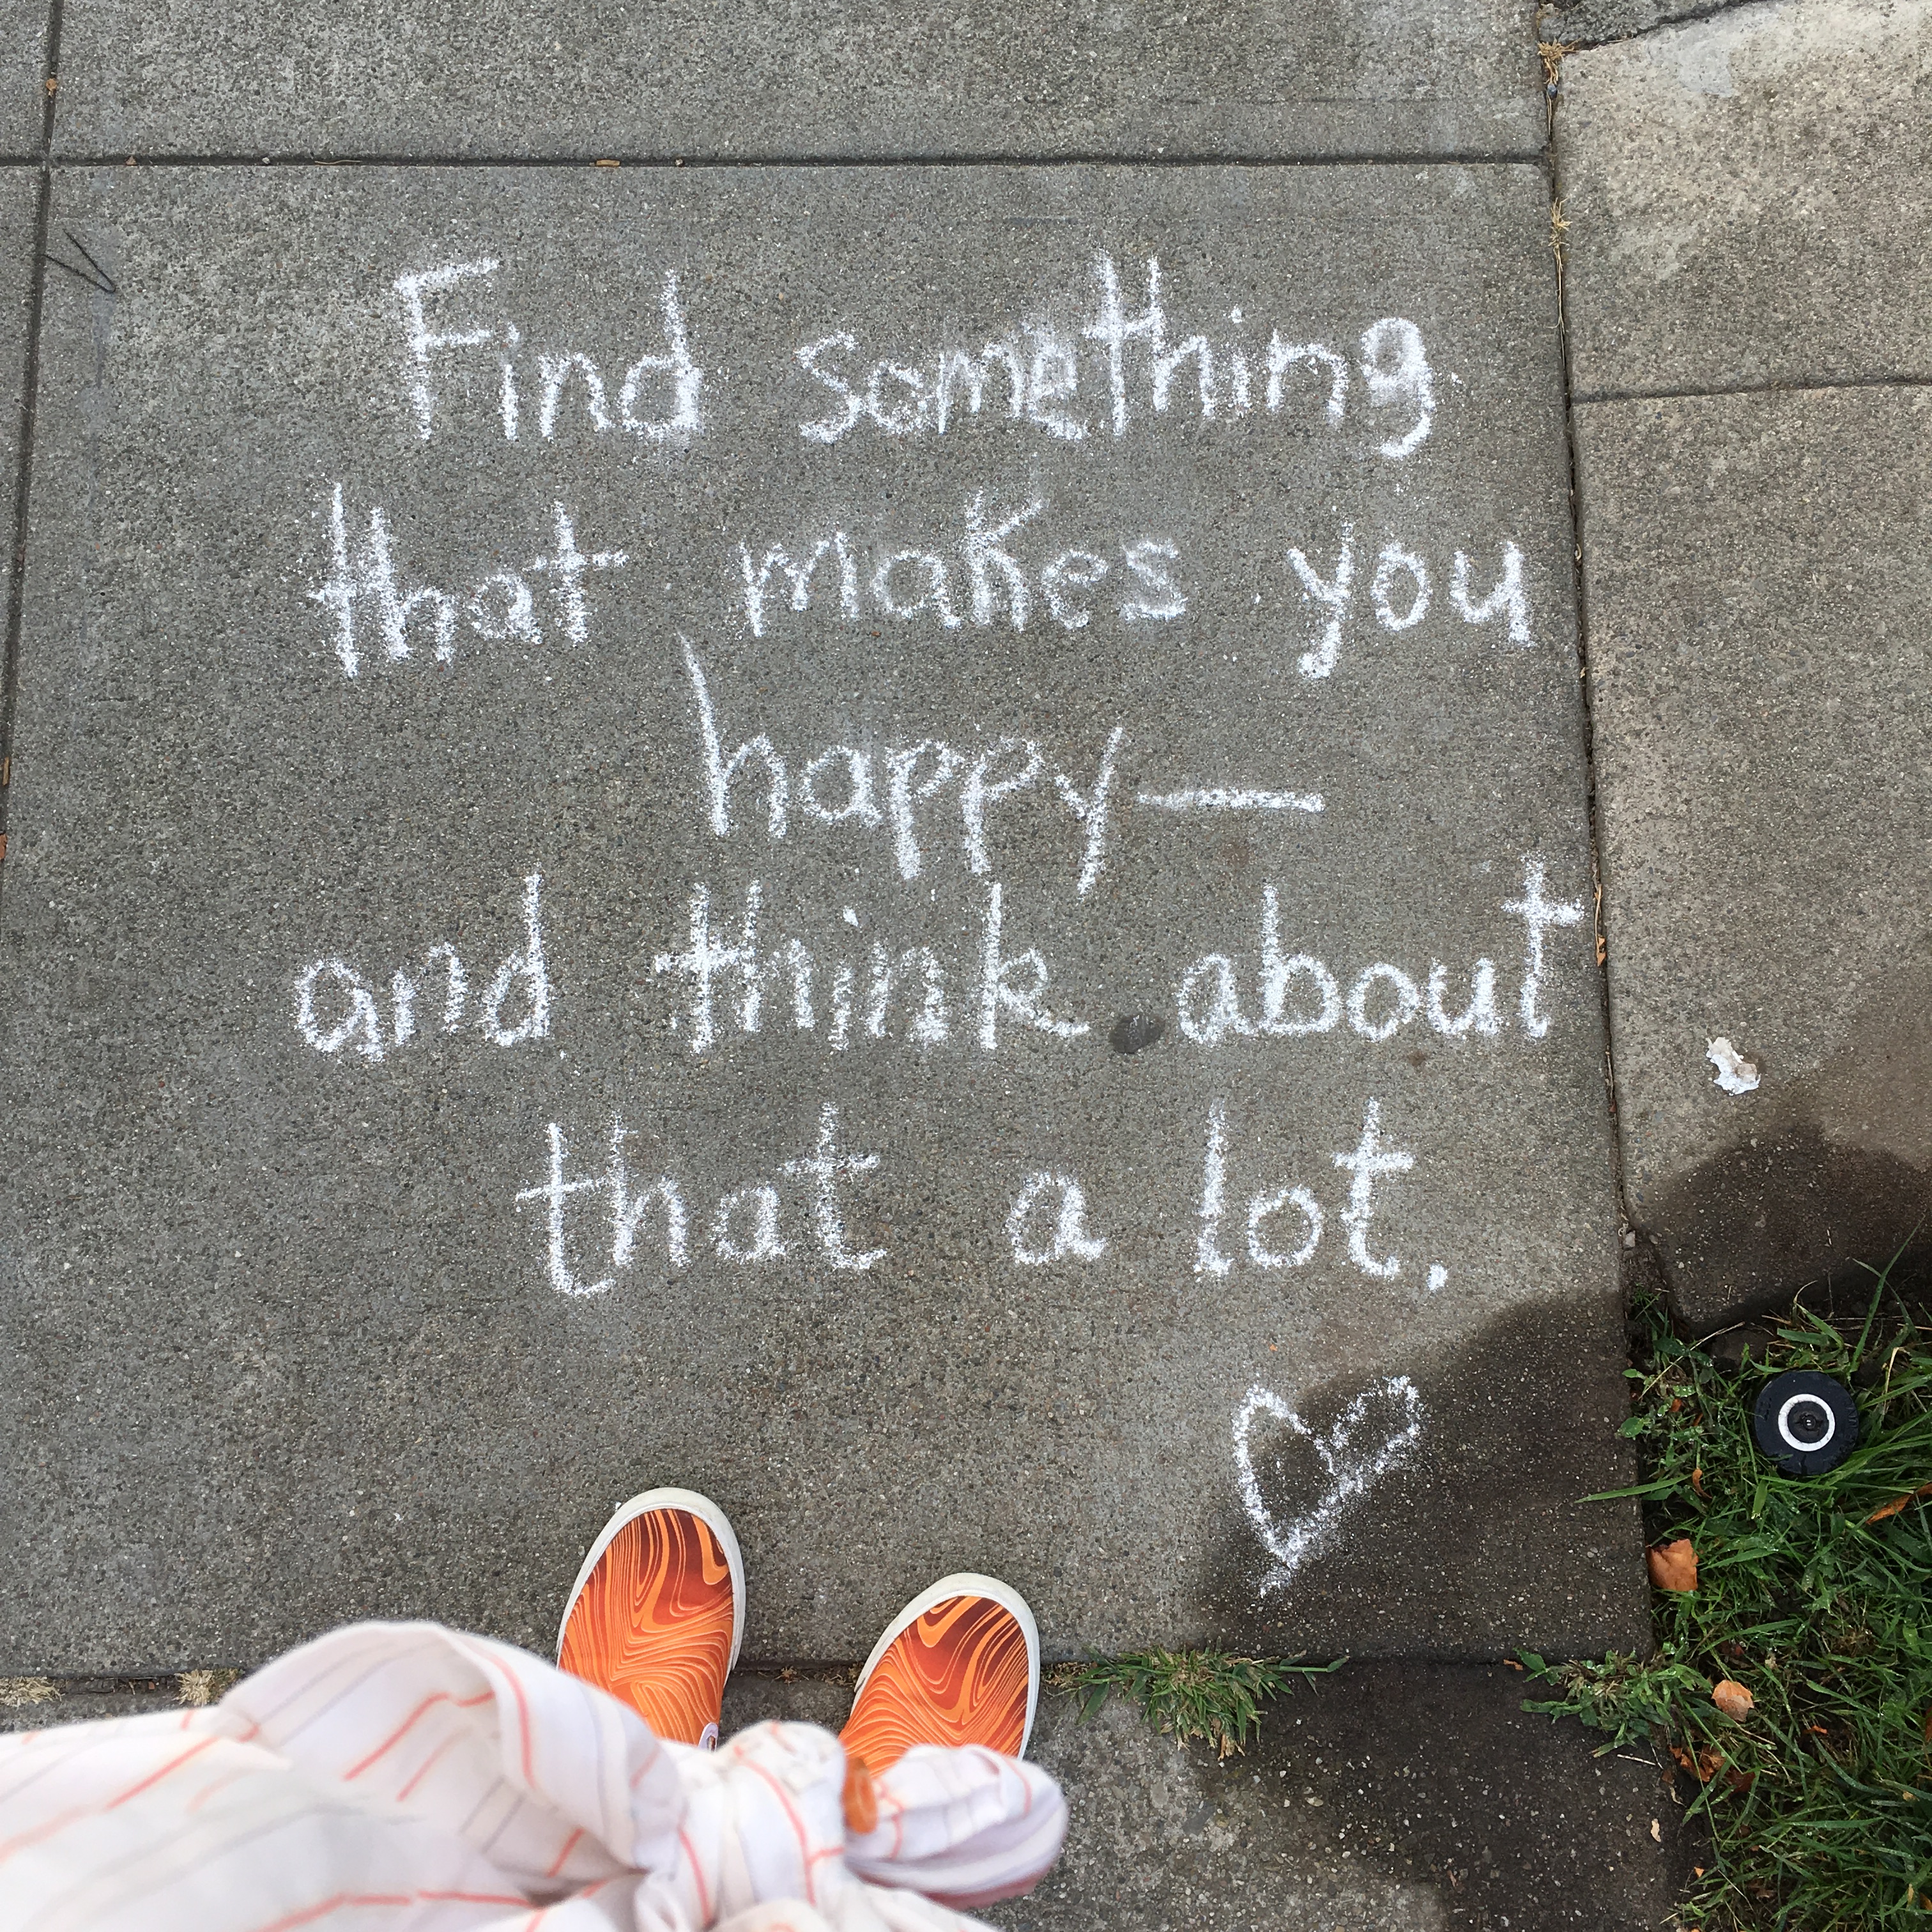 Find something
that makes you
happy—
and think about
that a lot.